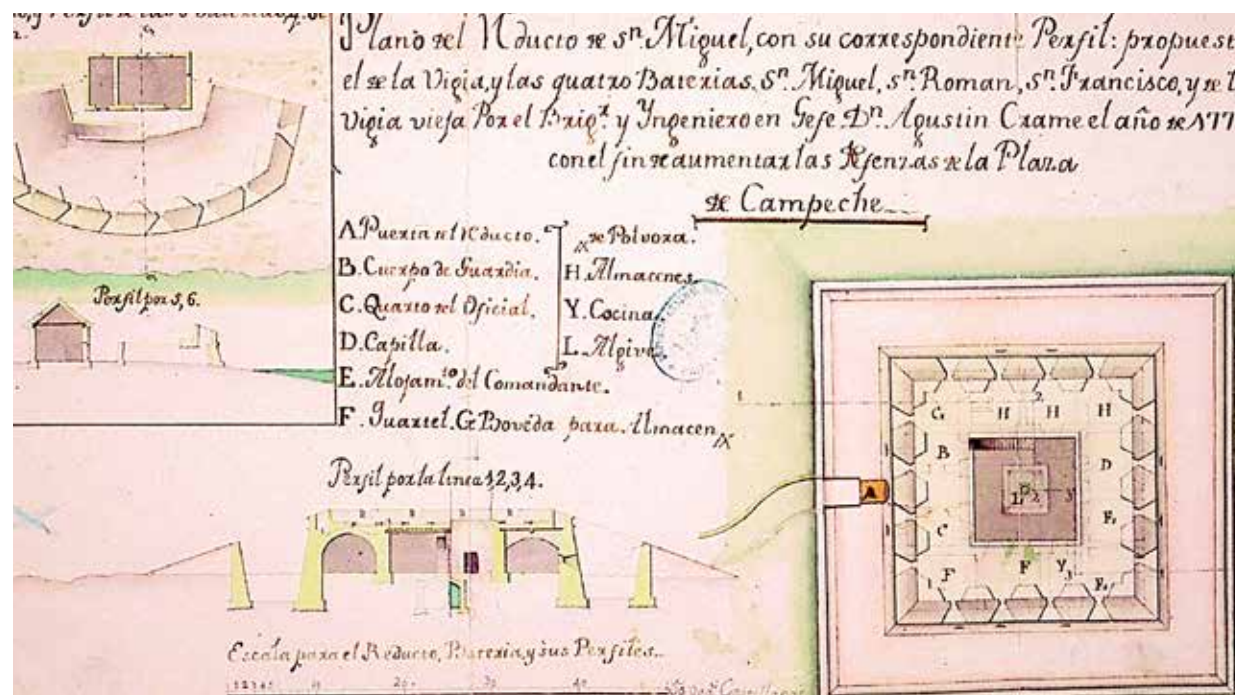 Plano del Rducto de sn. Miguel, con su correspondiente Perfil: propuest
el de la Vigia, y las quatro Baterias, Sn. Miguel, sn. Roman, sn. Francisco, y de l
Vigia vieja Por el Brigr. y Yngeniero en Gefe Dn. Agustin Crame el año de 177
con el fin de aumentar las Defensas de la Plaza
de Campeche
Perfil por 5, 6.
A. Puerta del Rducto.
B. Cuerpo de Guardia.
C. Quarto del Oficial.
D. Capilla.
E. Alojamto. del Comandante.
F. Quartel. G. Boveda para Almacen
de Polvora.
H. Almacenes.
Y. Cocina.
L. Algives
Perfil por la linea 1,2,3,4.
Escala para el Reducto, Bateria, y sus Perfiles.
10 20 30 40
2
G H H H
B D
A 1 2 3
C F
F F Y 3 F